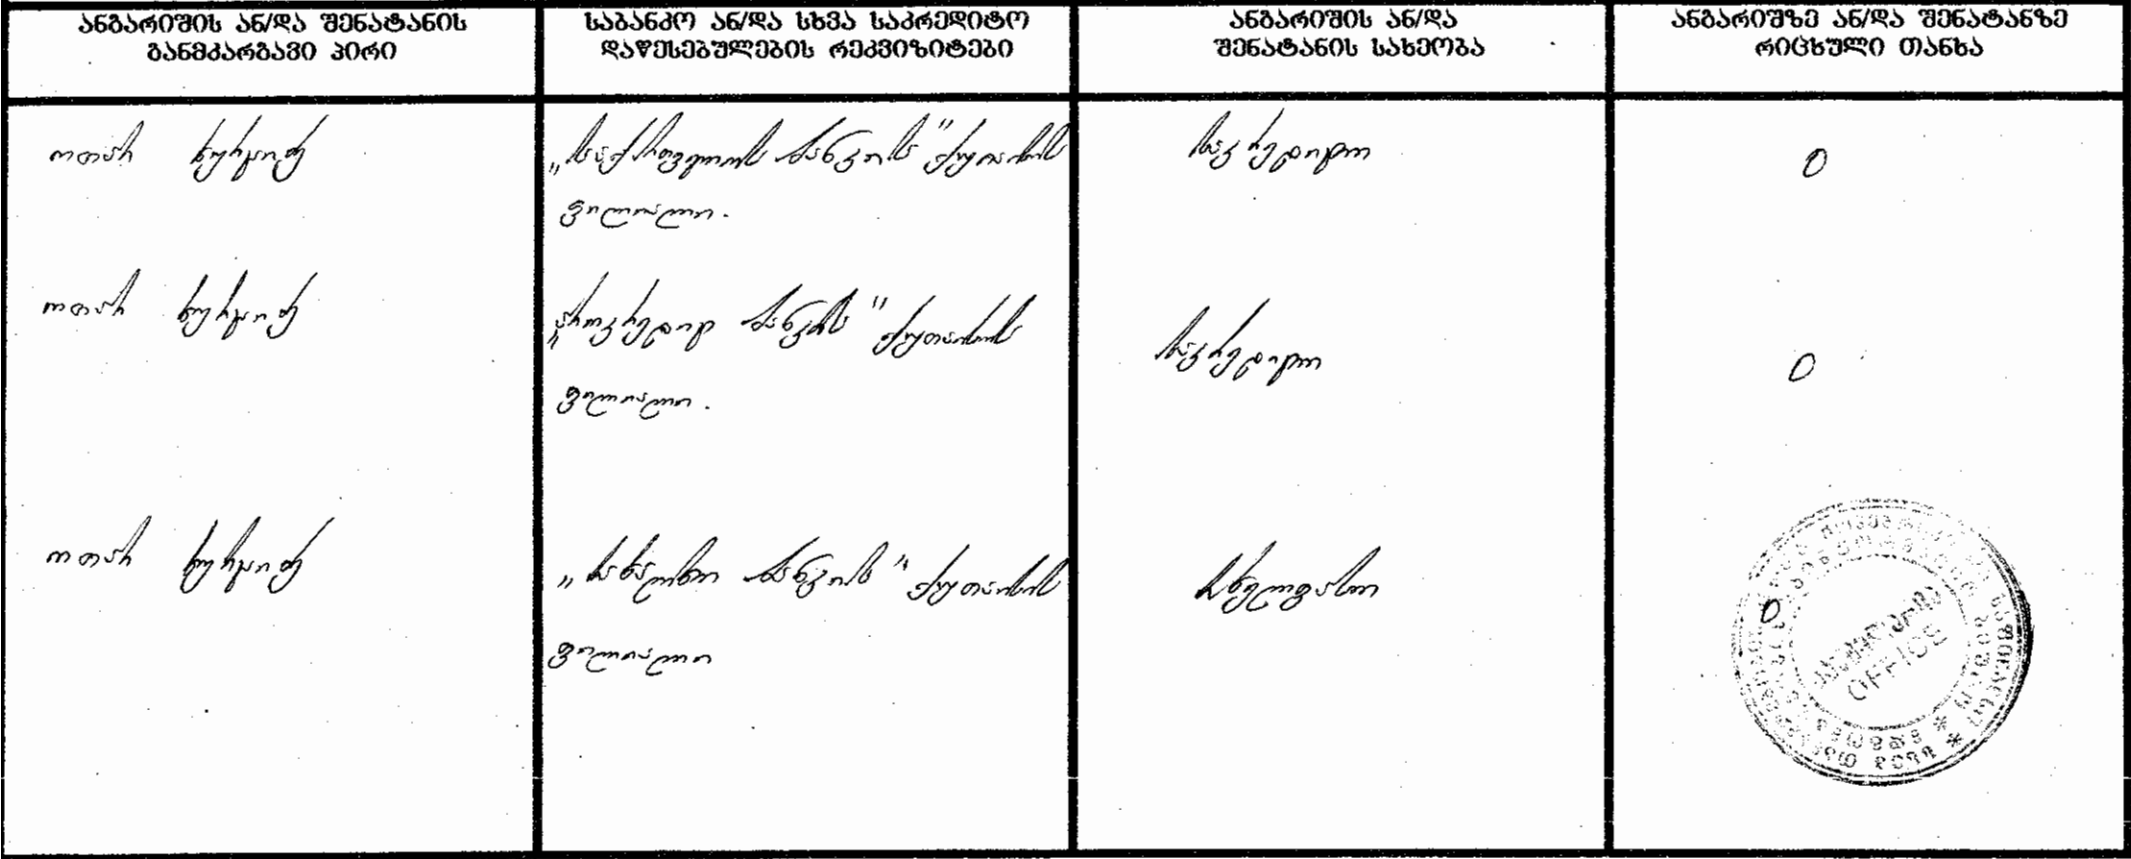 ანგარიშის ან/და შენატანის
განმკარგავი პირი
საბანკო ან/და სხვა საკრედიტო
დაწესებულების რეკვიზიტები
ანგარიშის ან/და
შენატანის სახეობა
ანგარიშზე ან/და შენატანზე
რიცხული თანხა
ოთარ ხურციძე
„საქართველოს ბანკის" ქუთაისის
ფილიალი.
საკრედიტო
0
ოთარ ხურციძე
„პროკრედიტ ბანკის" ქუთაისის
ფილიალი.
საკრედიტო
0
ოთარ ხურციძე
„სახალხო ბანკის" ქუთაისის
ფილიალი
სახელფასო
0
OFFICE